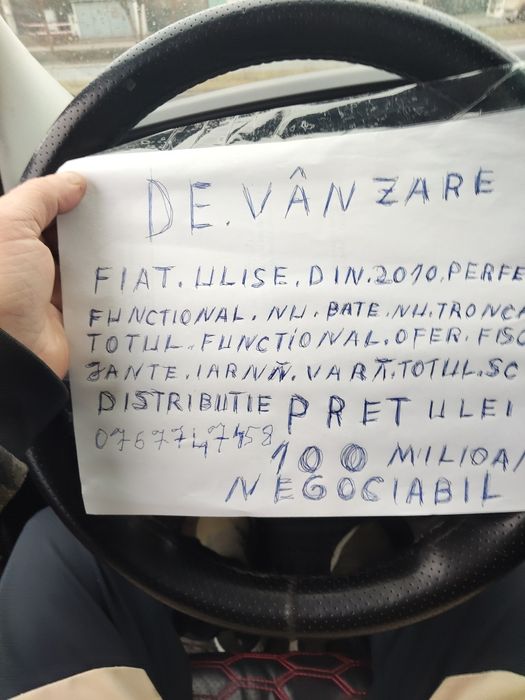 DE.VÂNZARE
FIAT.ULISE.DIN.2010.PERFE
FUNCTIONAL.NU.BATE.NU.TRONCA
TOTUL.FUNCTIONAL.OFER.FISC
JANTE.IARNĂ.VARĂ.TOTUL.SC
DISTRIBUTIE PRET ULEI
0767747458
100 MILIOA
NEGOCIABIL